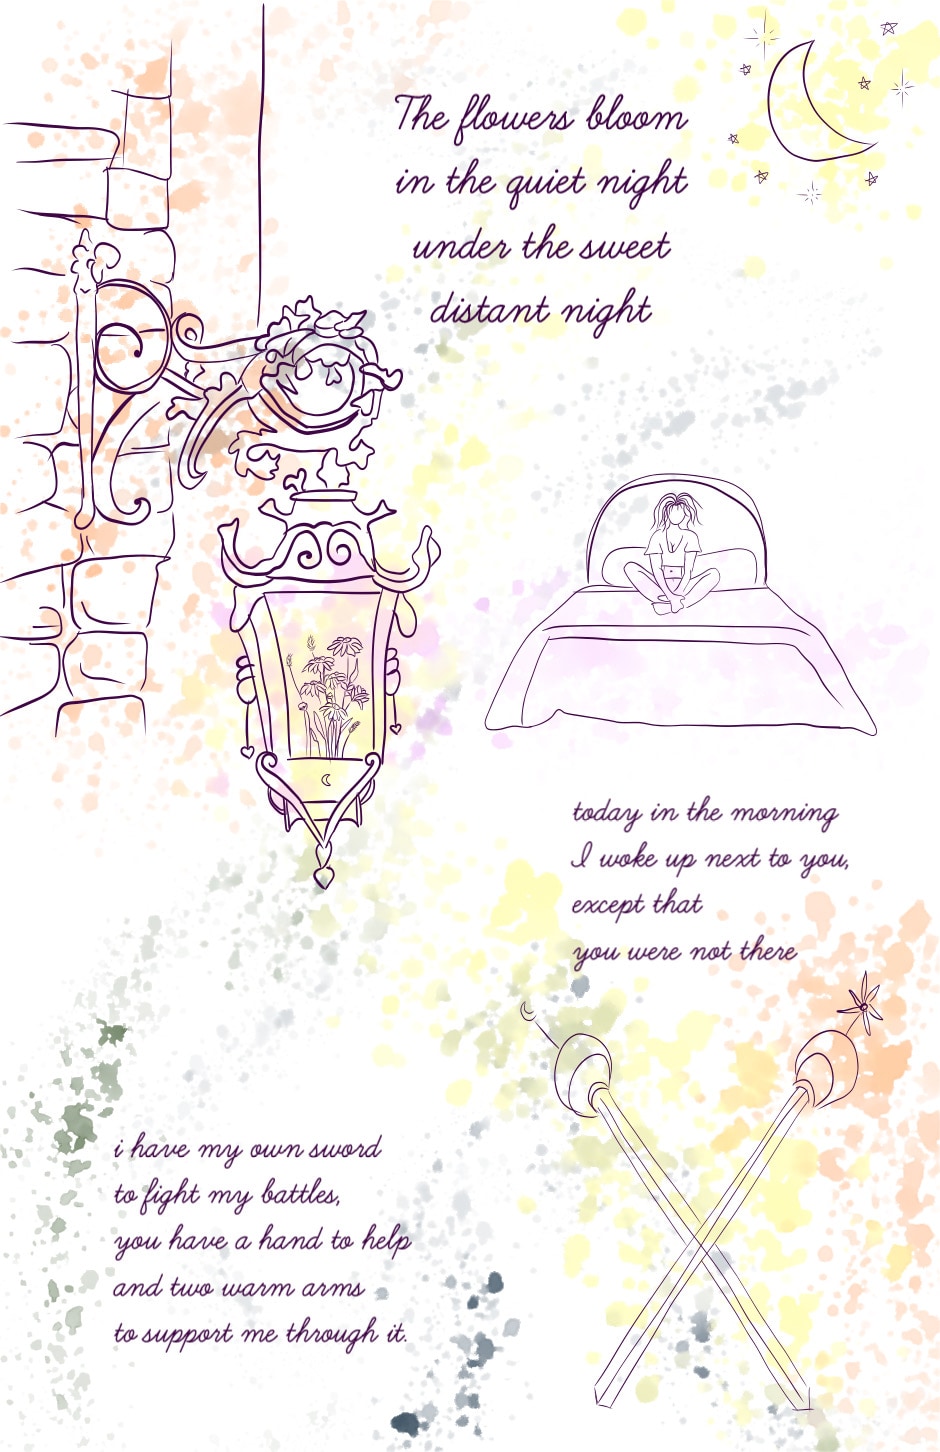 The flowers bloom
in the quiet night
under the sweet
distant night
today in the morning
I woke up next to you,
except that
you were not there
i have my own sword
to fight my battles,
you have a hand to help
and two warm arms
to support me through it.